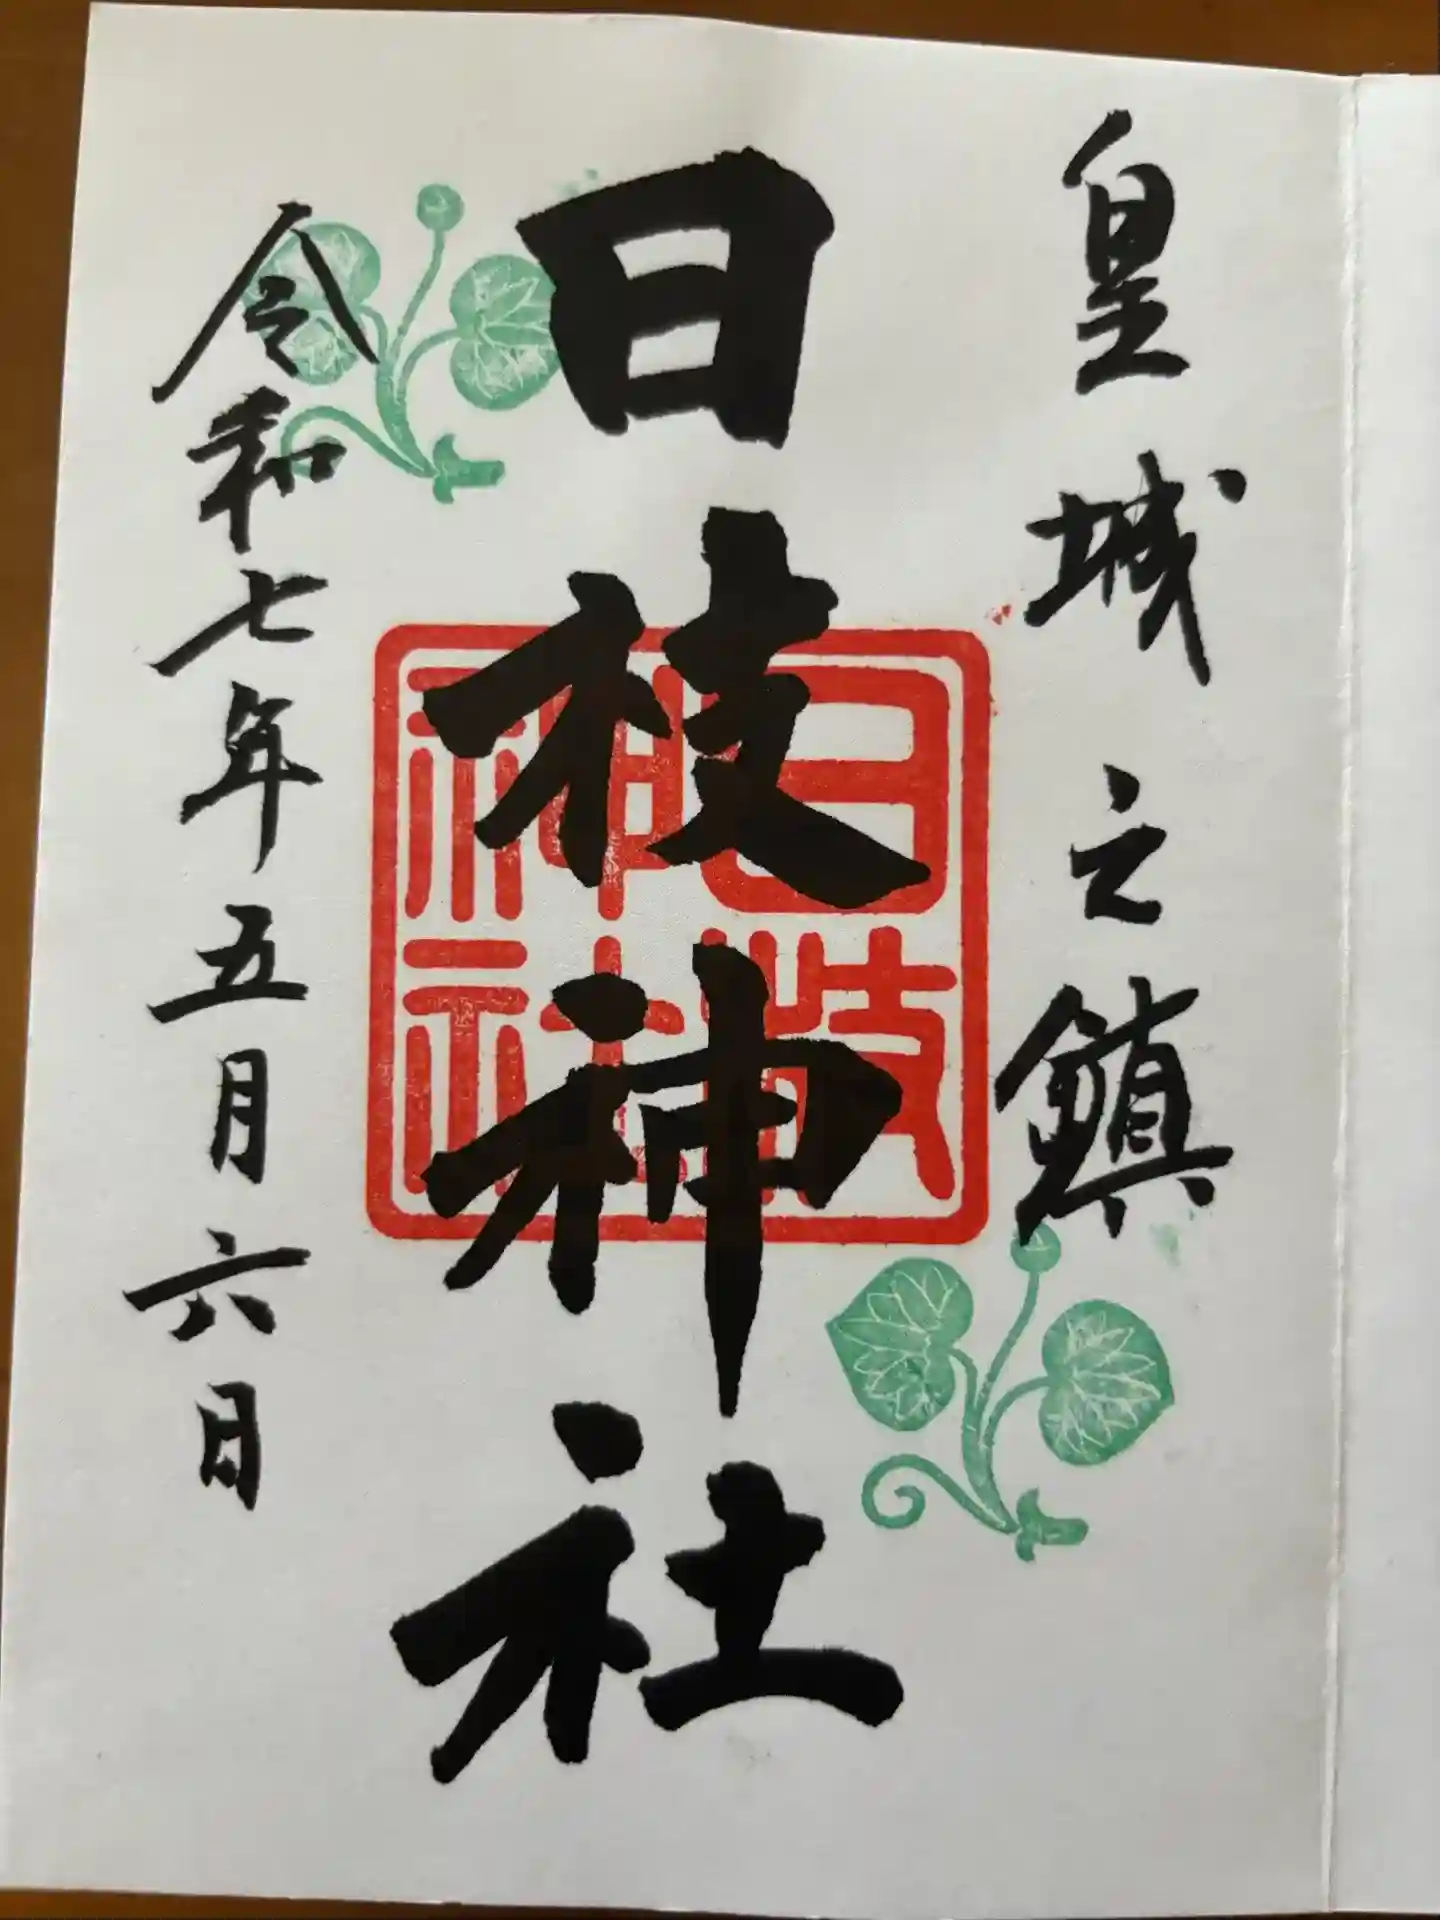 皇城之鎮
日枝神社
日枝神社
令和七年五月六日